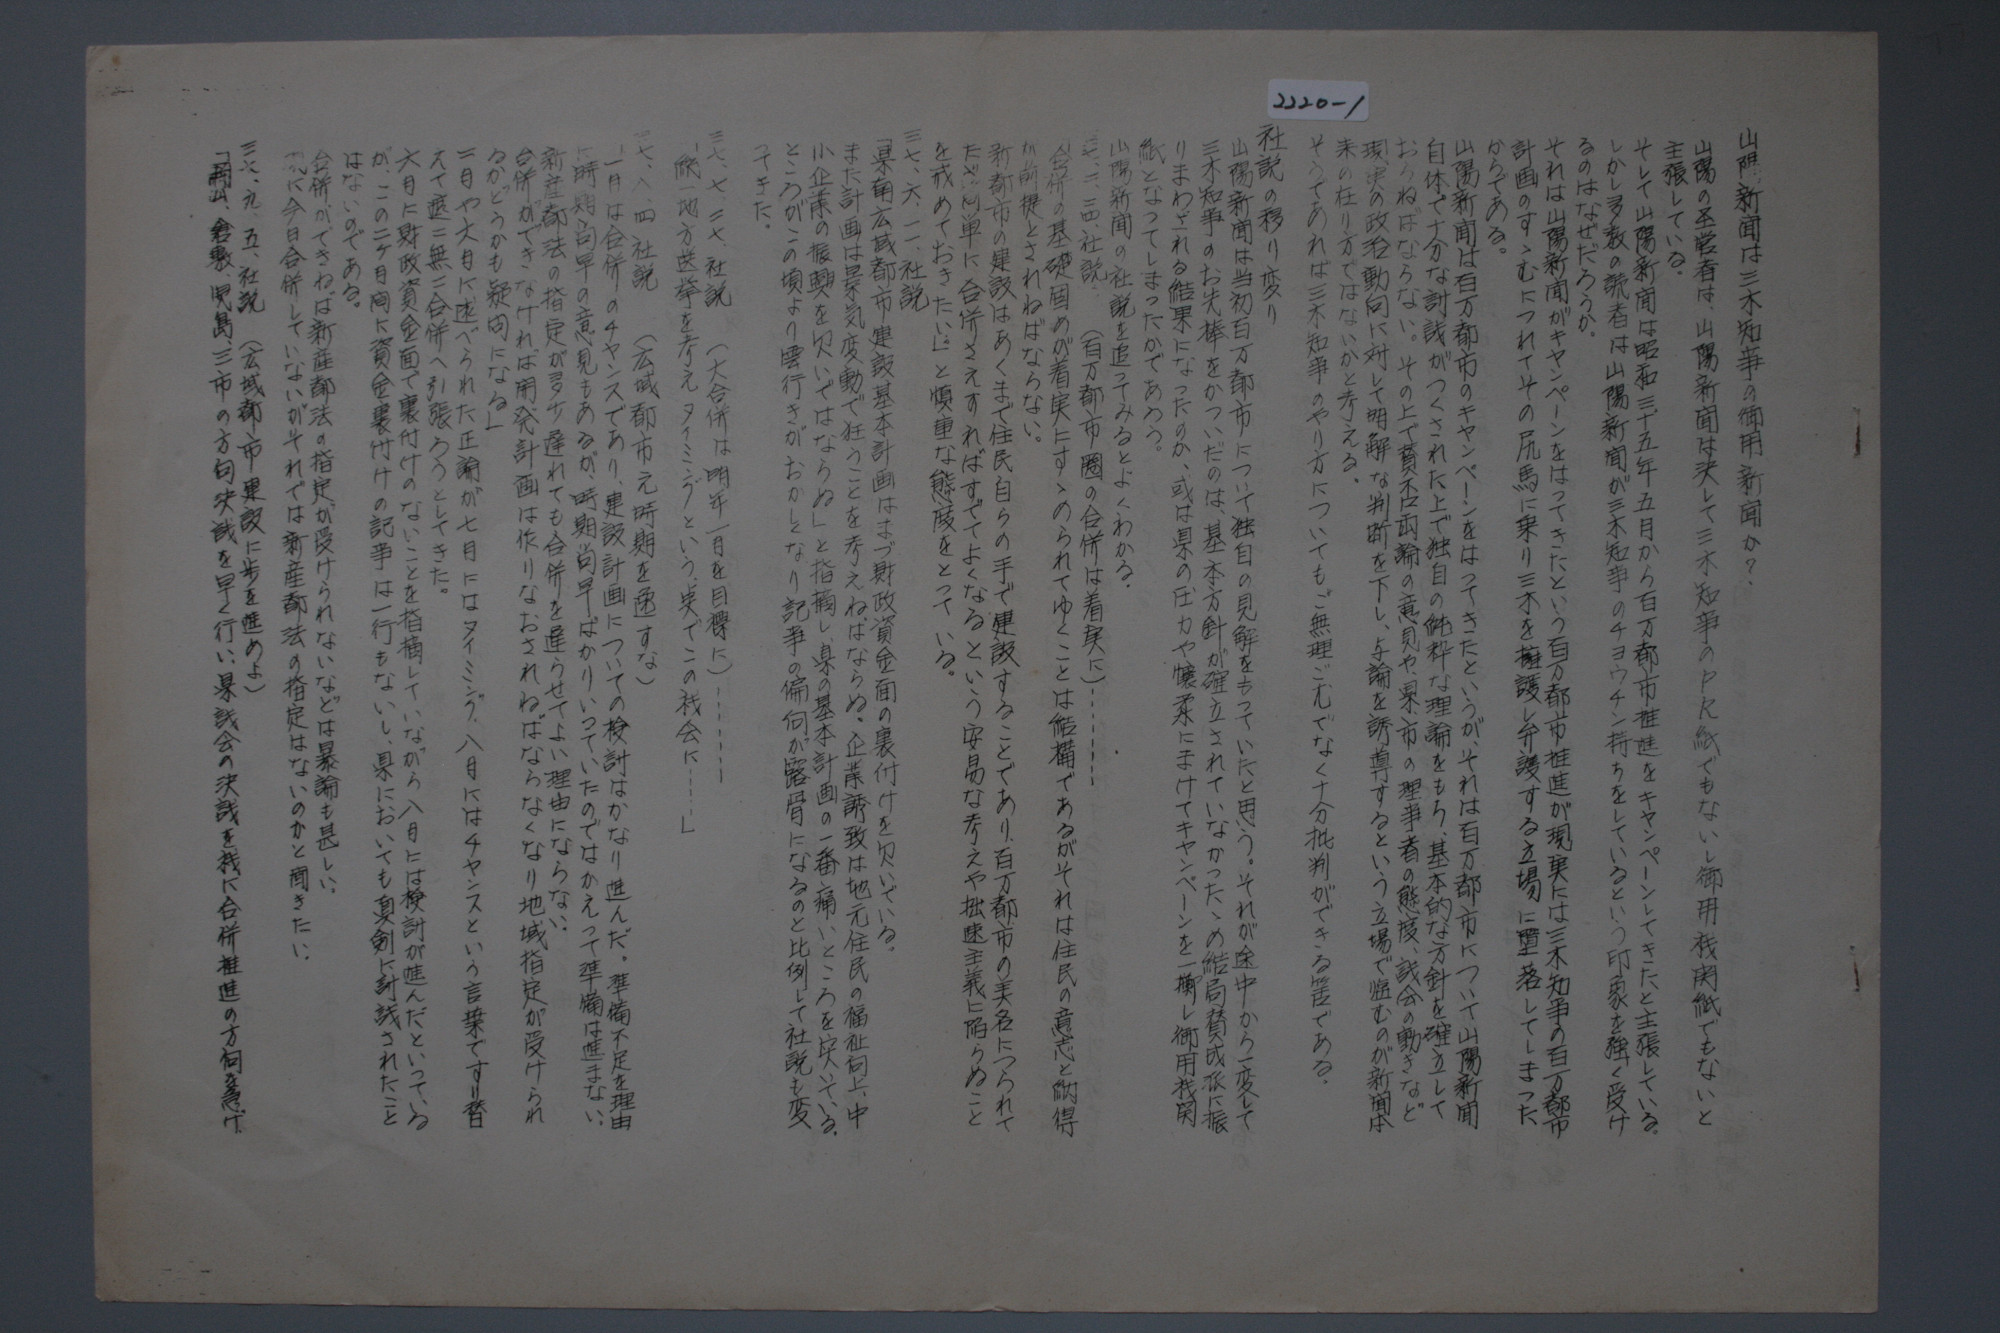 2220-1
山陽新聞は三木知事の御用新聞か?
山陽の圣営者は、山陽新聞は決して三木知事のPR紙でもないし御用機関紙でもないと
主張している。
そして山陽新聞は昭和三十五年五月から百万都市推進をキャンペーンしてきたと主張している。
しかし多数の読者は山陽新聞が三木知事のチョウチン持ちをしているという印象を強く受け
るのはなぜだろうか。
それは山陽新聞がキャンペーンをはってきたという百万都市推進が現実には三木知事の百万都市
計画のすゝむにつれてその尻馬に乗り三木を擁護し弁護する立場に墮落してしまった
からである。
山陽新聞は百万都市のキャンペーンをはってきたというが、それは百万都市について山陽新聞
自体で十分な討議がつくされた上で独自の純粋な理論をもち、基本的な方針を確立して
おらねばならない。その上で賛否両論の意見や、県、市の理事者の態度、議会の動きなど
現実の政治動向に対して明解な判断を下し、与論を誘導するという立場で臨むのが新聞本
来の在り方ではないかと考える。
そうであれば三木知事のやり方についてもご無理ご尤でなく十分批判ができる筈である。
社説の移り変り
山陽新聞は当初百万都市について独自の見解をもっていたと思う。それが途中から一変して
三木知事のお先棒をかついだのは、基本方針が確立されていなかったゝめ結局賛成派に振
りまわされる結果になったのか、或は県の圧力や懐柔にまけてキャンペーンを一擲し御用機関
紙となってしまったかであろう。
山陽新聞の社説を追ってみるとよくわかる。
三、四、社説 (百万都市圏の合併は着実に)------
「合併の基礎固めが着実にすゝめられてゆくことは結構であるがそれは住民の意志と納得
が前提とされねばならない。
新都市の建設はあくまで住民自らの手で建設することであり、百万都市の美名につられて
たゞ簡単に合併さえすればすべてよくなるという安易な考えや拙速主義に陥らぬこと
を戒めておきたい」と慎重な態度をとっている。
三七、六、一一、社説
「県南広域都市建設基本計画はまづ財政資金面の裏付けを欠いでいる。
また計画は景気変動で狂うことを考えねばならぬ。企業誘致は地元住民の福祉向上、中
小企業の振興を欠いではならぬ」と指摘し、県の基本計画の一番痛いところを突いている。
ところがこの頃より雲行きがおかしくなり記事の偏向が露骨になるのと比例して社説も変
ってきた。
三七、七、二七、社説 (大合併は明年一月を目標に)------
「統一地方選挙を考えタイミングという実でこの機会に----」
三七、八、四 社説 (広域都市元時期を逸すな)
「一月は合併のチャンスであり、建設計画についての検討はかなり進んだ。準備不足を理由
に時期尚早の意見もあるが、時期尚早ばかりいっていたのではかえって準備は進まない、
新産都法の指定が多少遅れても合併を遅らせてよい理由にならない。
合併ができなければ開発計画は作りなおされねばならなくなり地域指定が受けられ
るかどうかも疑問になる」
二月や六月に述べられた正論が七月にはタイミング、八月にはチャンスという言葉ですり替
えて遮二無二合併へ引張ろうとしてきた。
六月に財政資金面で裏付けのないことを指摘していながら八月には検討が進んだといっている
が、この二ヶ月間に資金裏付けの記事は一行もないし、県においても真剣に討議されたこと
はないのである。
合併ができねば新産都法の指定が受けられないなどは暴論も甚しい、
現に今日合併していないがそれでは新産都法の指定はないのかと聞きたい。
三七、九、五、社説 (広域都市建設に歩を進めよ)
「岡山、倉敷、児島三市の方向決議を早く行い、県議会の決議を機に合併推進の方向を急げ、